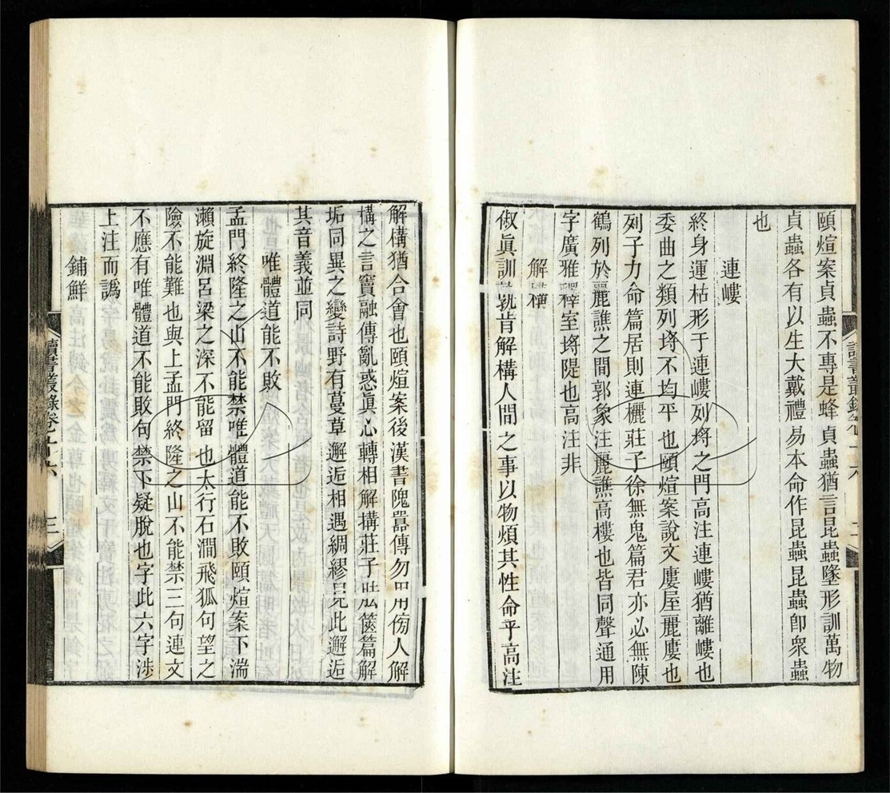 頤煊案貞蟲不專是蜂貞蟲猶言昆蟲墜形訓萬物
貞蟲各有以生大戴禮易本命作昆蟲昆蟲卽衆蟲
也
連嶁
終身運枯形于連嶁列埒之門高注連嶁猶離嶁也
委曲之類列埒不均平也頤煊案說文廔屋麗廔也
列子力命篇居則連欐莊子徐無鬼篇君亦必無陳
鶴列於麗譙之間郭象注麗譙高樓也皆同聲通用
字廣雅釋室埒隄也高注非
解構
俶眞訓孰肯解構人間之事以物煩其性命乎高注
讀書叢錄卷十六
二
解構猶合會也頤煊案後漢書隗囂傳勿用傍人解
構之言竇融傳亂惑眞心轉相解構莊子胠篋篇解
垢同異之變詩野有蔓草邂逅相遇綢繆見此邂逅
其音義並同
唯體道能不敗
孟門終隆之山不能禁唯體道能不敗頤煊案下湍
瀨旋淵呂梁之深不能留也太行石澗飛狐句望之
險不能難也與上孟門終隆之山不能禁三句連文
不應有唯體道不能敗句禁下疑脫也字此六字涉
上注而譌
鋪鮮
讀書叢錄卷十六
三